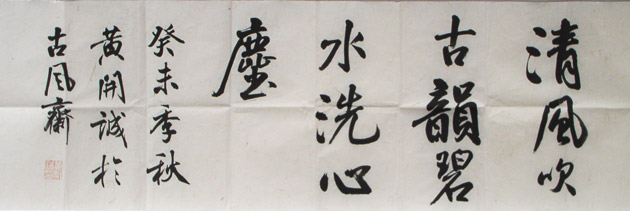 清風吹
古韻碧
水洗心
塵
癸未季秋
黃開誠於
古风齋